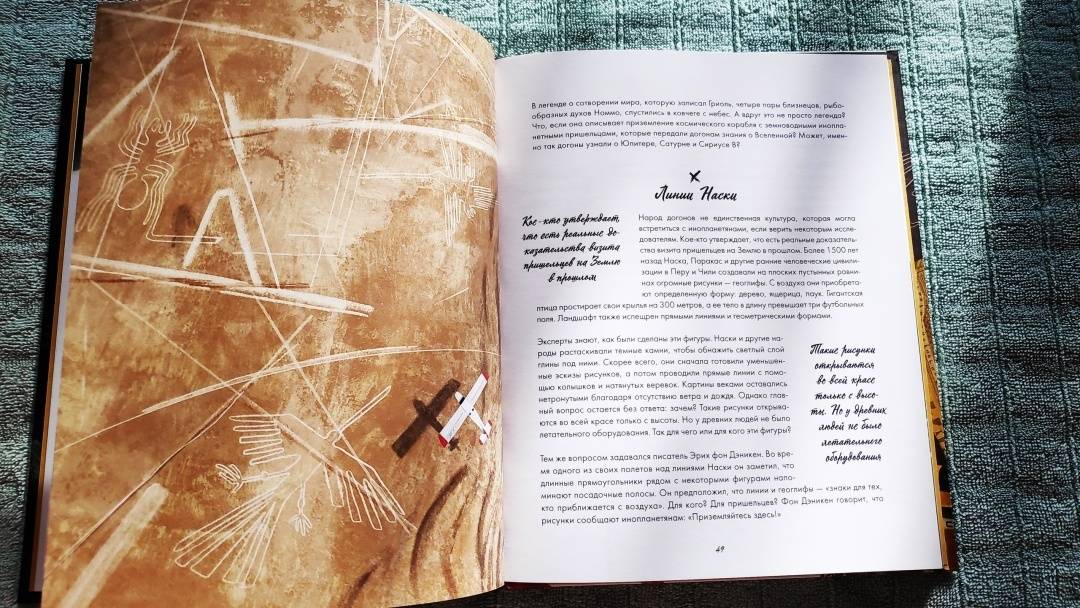 В легенде о сотворении мира, которую записал Гриоль, четыре пары близнецов, рыбо-
образных духов Номмо, спустились в ковчеге с небес. А вдруг это не просто легенда?
Что, если она описывает приземление космического корабля с земноводными инопла-
нетными пришельцами, которые передали догонам знания о Вселенной? Может, имен-
но так догоны узнали о Юпитере, Сатурне и Сириусе В?
Линии Наски
Кое-кто утверждает,
что есть реальные до-
казательства визита
пришельцев на Землю
в прошлом
Народ догонов не единственная культура, которая могла
встретиться с инопланетянами, если верить некоторым иссле-
дователям. Кое-кто утверждает, что есть реальные доказатель-
ства визита пришельцев на Землю в прошлом. Более 1500 лет
назад Наска, Паракас и другие ранние человеческие цивили-
зации в Перу и Чили создавали на плоских пустынных равни-
нах огромные рисунки — геоглифы. С воздуха они приобрета-
ют определенную форму: дерево, ящерица, паук. Гигантская
птица простирает свои крылья на 300 метров, а ее тело в длину превышает три футбольных
поля. Ландшафт также испещрен прямыми линиями и геометрическими формами.
Эксперты знают, как были сделаны эти фигуры. Наски и другие на-
роды растаскивали темные камни, чтобы обнажить светлый слой
глины под ними. Скорее всего, они сначала готовили уменьшен-
ные эскизы рисунков, а потом проводили прямые линии с помо-
щью колышков и натянутых веревок. Картины веками оставались
нетронутыми благодаря отсутствию ветра и дождя. Однако глав-
ный вопрос остается без ответа: зачем? Такие рисунки открыва-
ются во всей красе только с высоты. Но у древних людей не было
летательного оборудования. Так для чего или для кого эти фигуры?
Такие рисунки
открываются
во всей красе
только с высо-
ты. Но у древних
людей не было
летательного
оборудования
Тем же вопросом задавался писатель Эрих фон Дэникен. Во вре-
мя одного из своих полетов над линиями Наски он заметил, что
длинные прямоугольники рядом с некоторыми фигурами напо-
минают посадочные полосы. Он предположил, что линии и геоглифы — «знаки для тех,
кто приближается с воздуха». Для кого? Для пришельцев? Фон Дэникен говорит, что
рисунки сообщают инопланетянам: «Приземляйтесь здесь!»
49